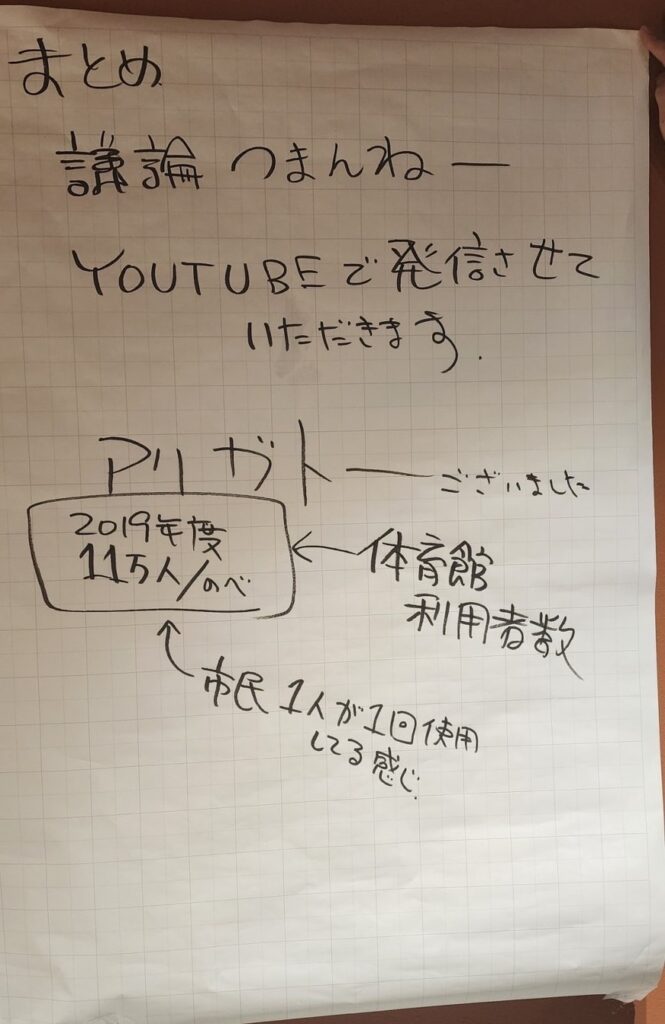 まとめ
議論 つまんねー
YOUTUBEで発信させて
いただきます.
アリガトーございました
2019年度
11万人/のべ
←体育館
利用者数
市民 1人が1回使用
してる感じ.